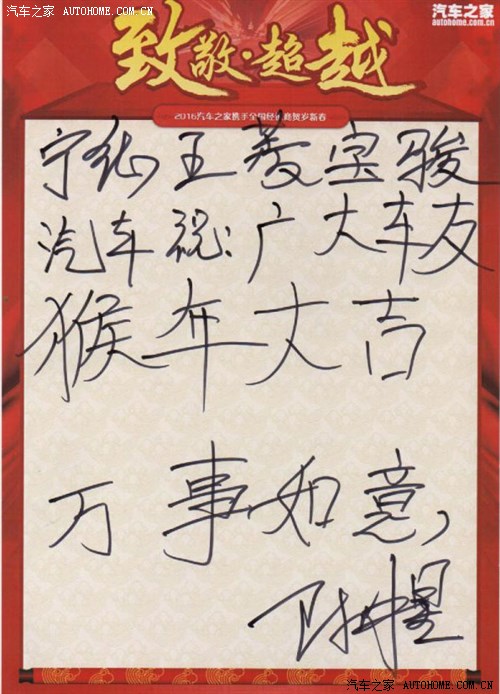 汽车之家 AUTOHOME.COM.CN
汽车之家
autohome.com.cn
致敬·超越
2016汽车之家携手全国经销商贺岁新春
宁 五菱宝骏
汽车祝:广大车友
猴年大吉
万事如意,
汽车之家 AUTOHOME.COM.CN